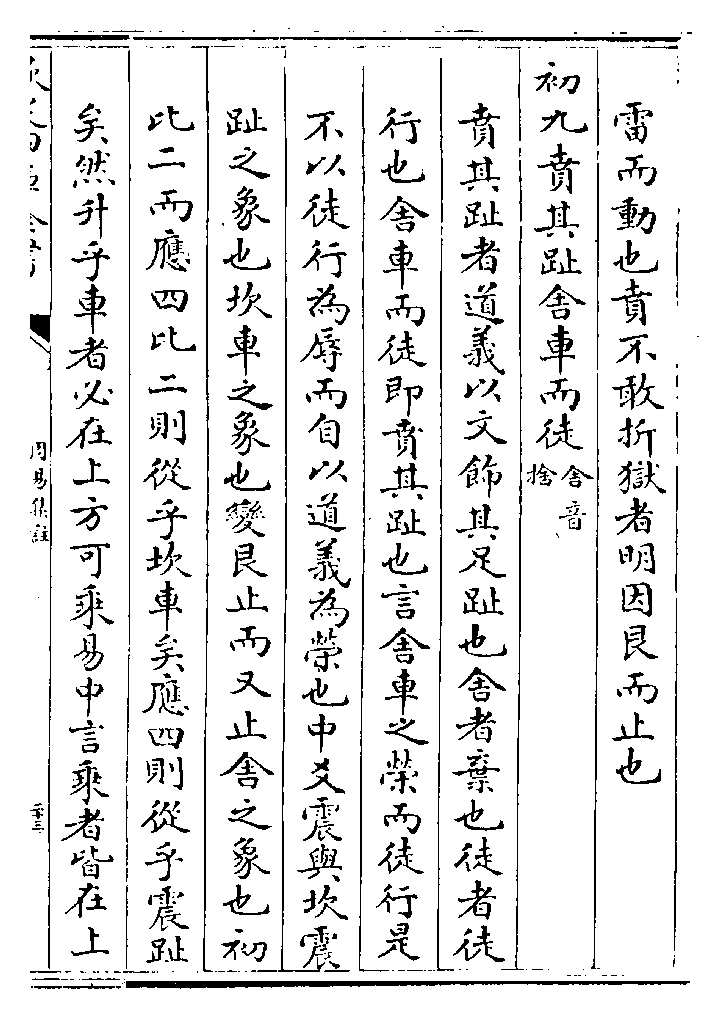 雷而動也賁不敢折獄者明因艮而止也
初九賁其趾舍車而徒舍音捨
賁其趾者道義以文飾其足趾也舍者棄也徒者徒
行也舍車而徒即賁其趾也言舍車之榮而徒行是
不以徒行為辱而自以道義為榮也中爻震與坎震
趾之象也坎車之象也變艮止而又止舍之象也初
比二而應四比二則從乎坎車矣應四則從乎震趾
矣然升乎車者必在上方可乘易中言乘者皆在上
周易集註